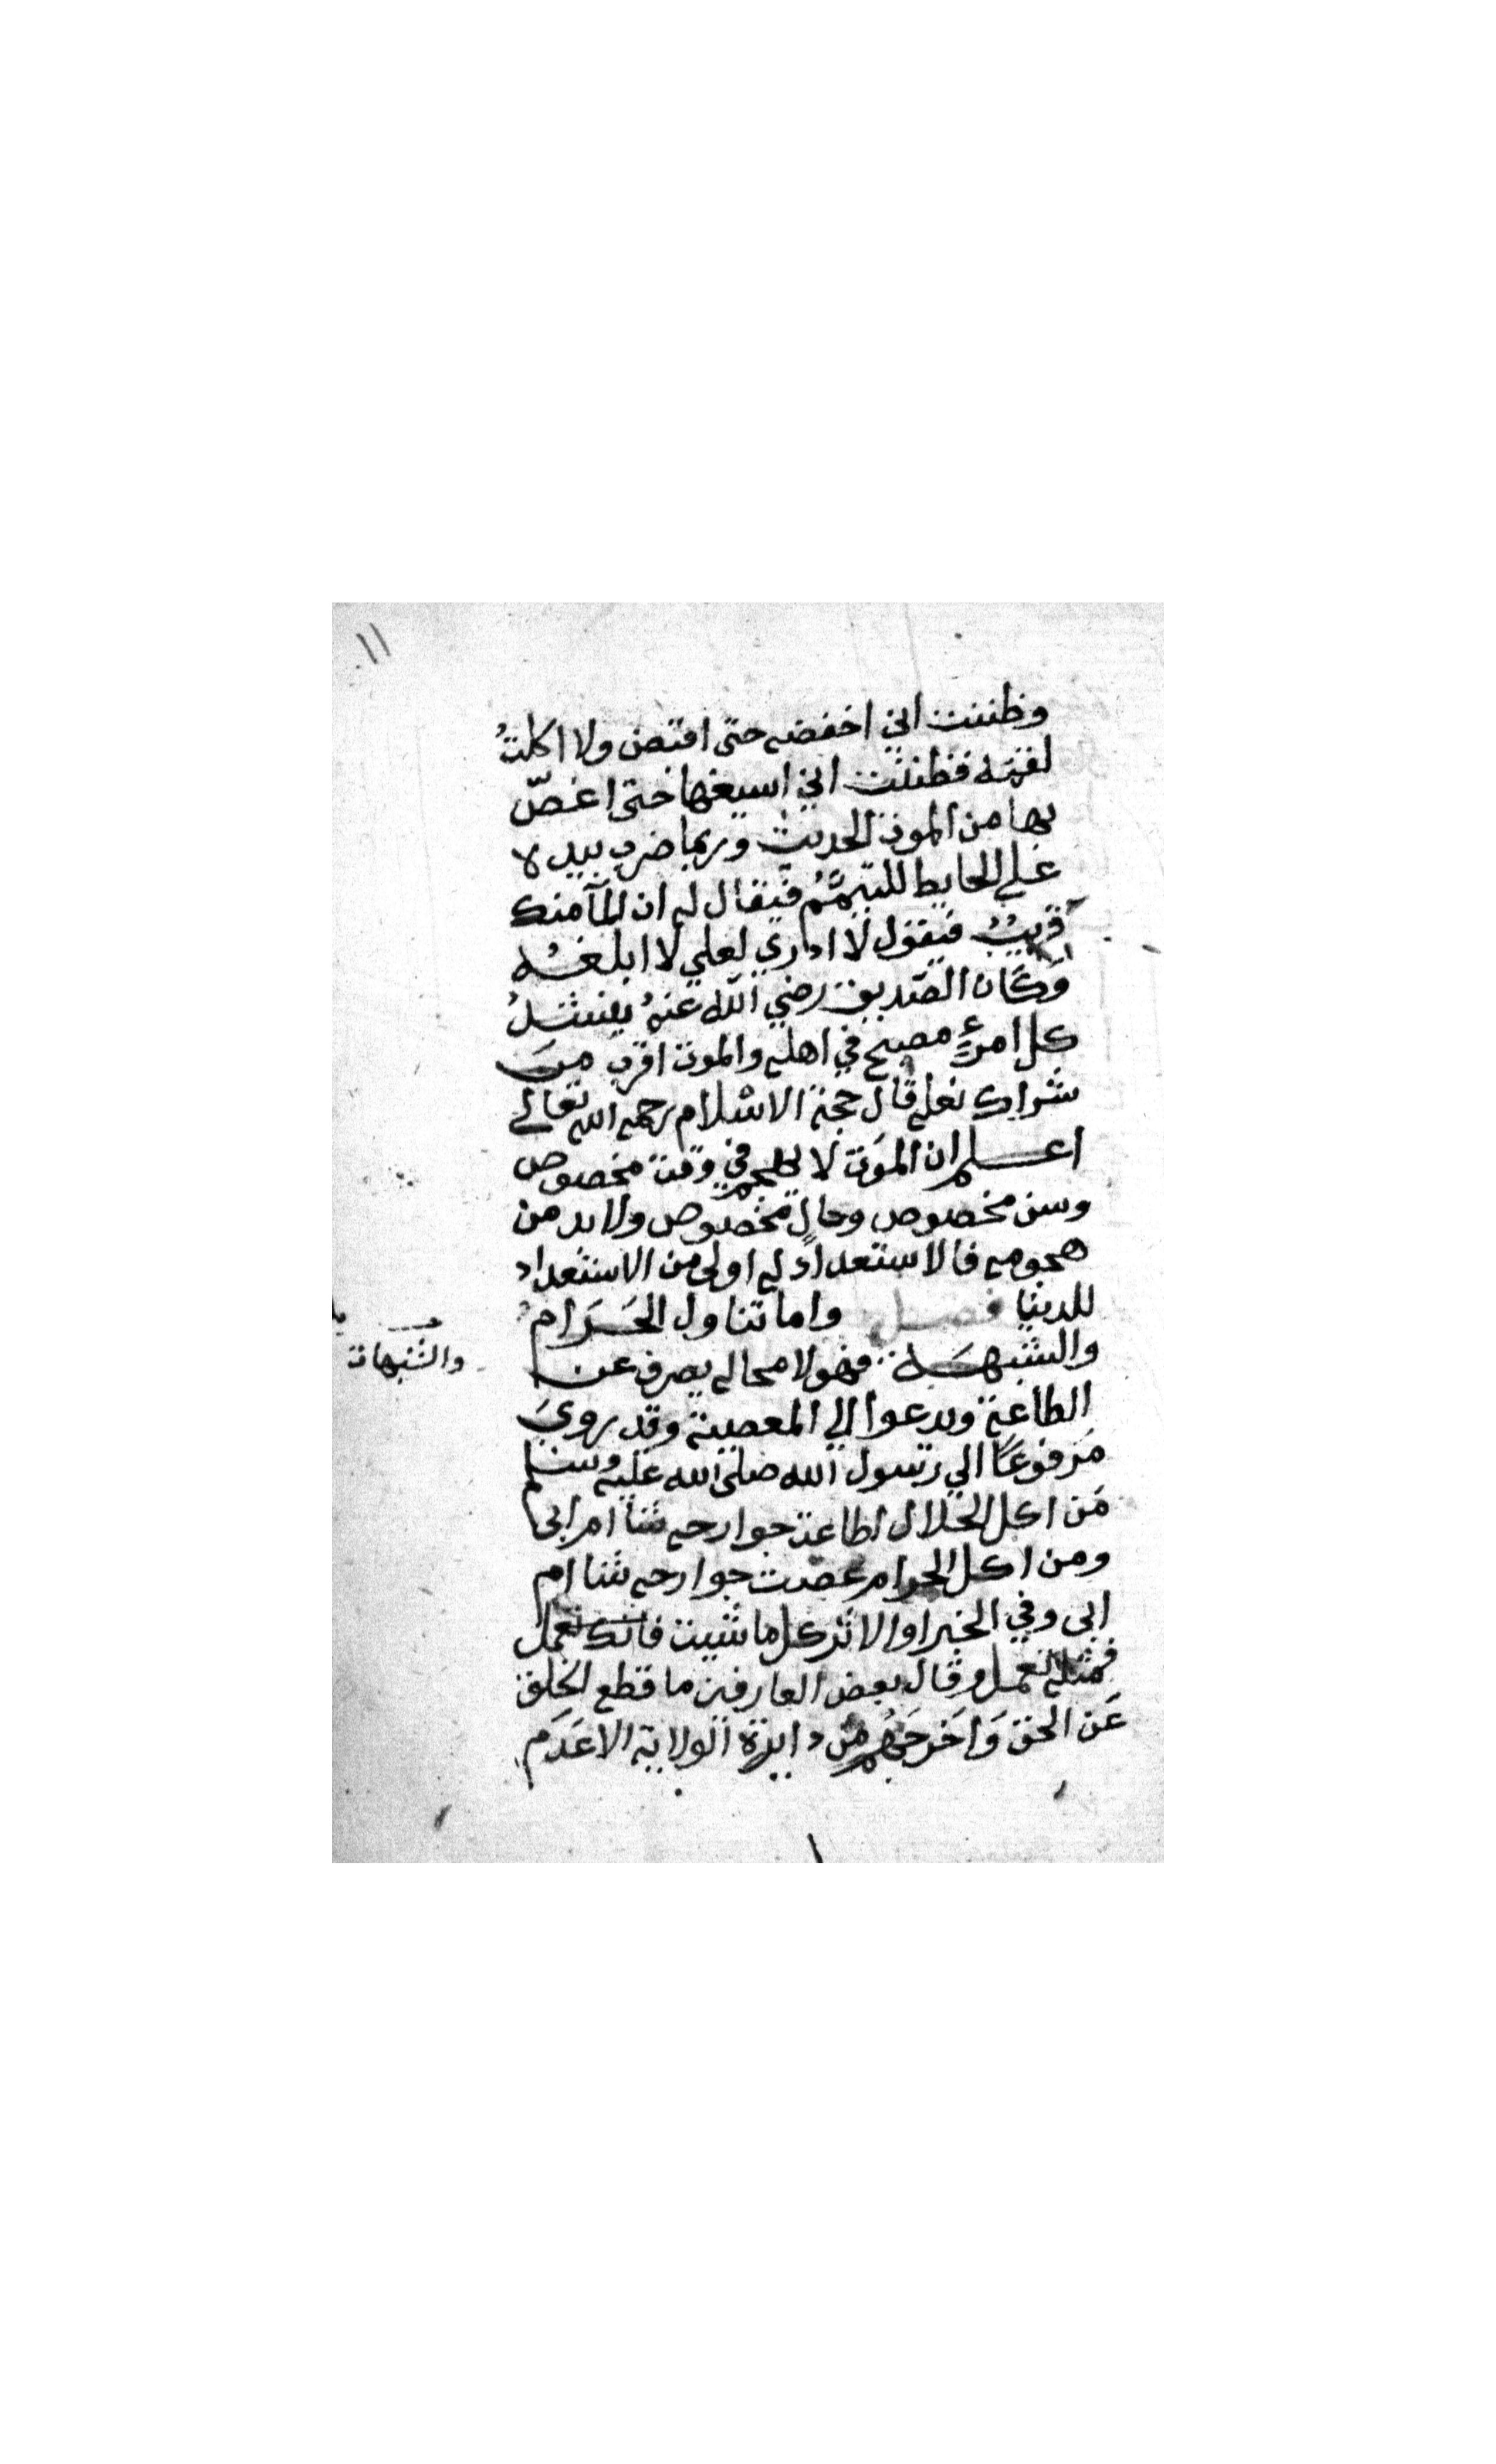 ١١
وظننت اني اخفضه حتى اقبض ولا اكلتُ
لقمة فظننت اني اسيغها حتى اغصّ
بها من الموت الحديث وربما ضرب بيده
علي الحايط للتيمُّمُ فيقال له ان المآ منك
قريبٌ فيقول لا ادري لعلي لا ابلغه
وكان الصديق رضي الله عنهُ ينشدُ
كل امرءٍ مصبح في اهله والموت اقرب من
شراك نعله قال حجة الاسلام رحمه الله تعالي
اعلم ان الموت لا يهجم في وقت مخصوص
وسن مخصوص وحالٍ مخصوص ولابد من
هجومه فالاستعداد له اولى من الاستعداد
للدنيا فصل واما تناول الحَرَام
والشبهة فهو لا محاله يصرف عن
والشبهات
الطاعة ويدعوا الي المعصية وقد روي
مَرفوعًا الي رسول الله صلى الله عليه وسلم
مَن اكل الحلال اطاعت جوارحه شاا م ابى
ومن اكل الحرام عصت جوارحه شاا م
ابى وفي الخبر او الاثر كل ما شيت فانك تعمل
فمثله تعمل وقال بعض العارفين ما قطع الخلق
عَن الحق وَاخرجَهُم من دايرة الولاية الا عَدَم